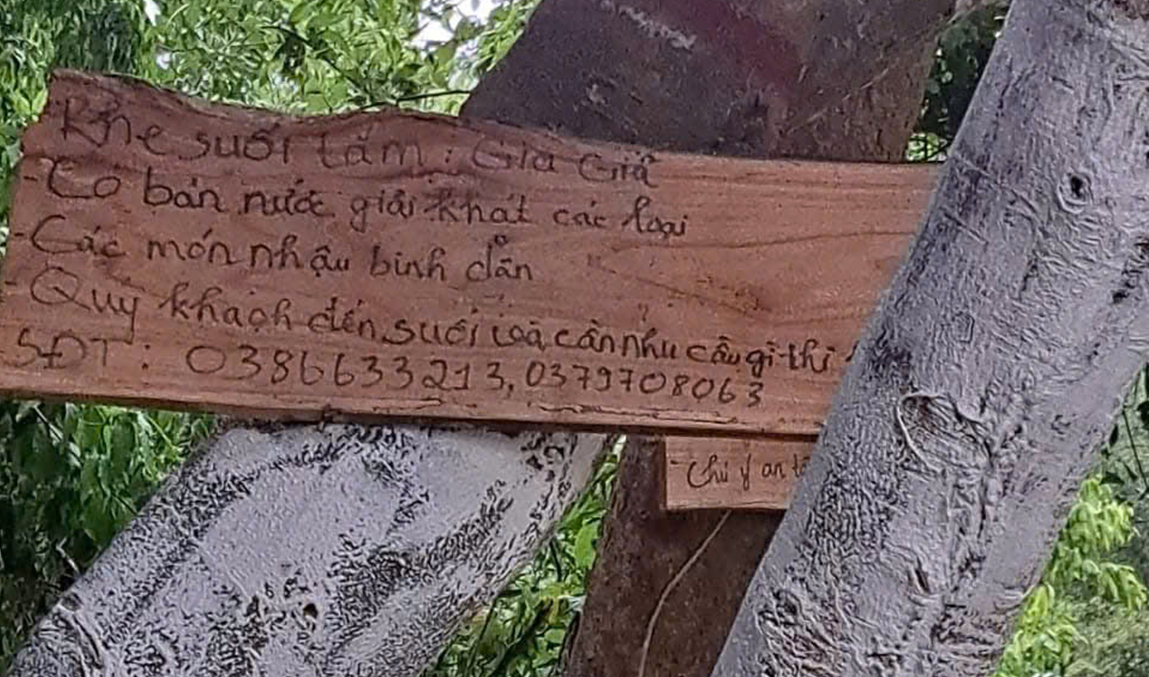 Khe suối tắm: Gia Giả
- Có bán nước giải khát các loại
- Các món nhậu bình dân
- Quý khách đến suối và cần nhu cầu gì thì
SĐT: 0386633213, 0379708063
- Chú ý an